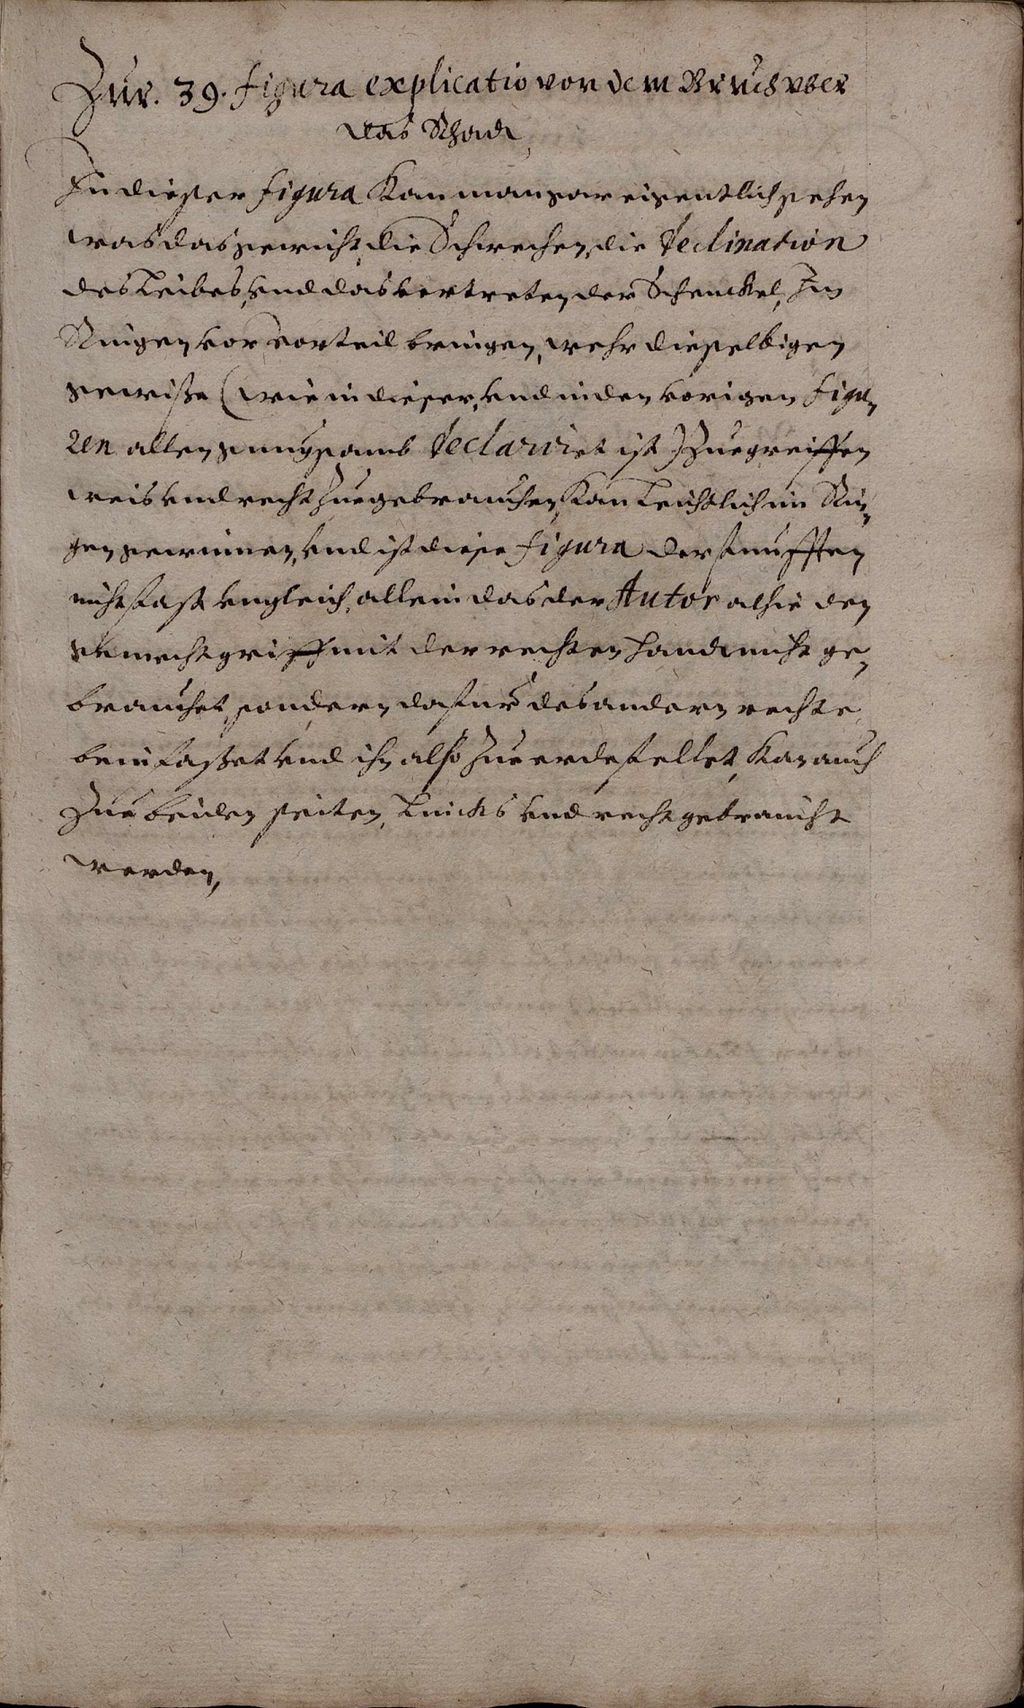 Zur. 39. figura explicatio von dem Bruch vber
das
In dieser figura kan man gar eigentlich sehen
was das gewicht, die Schwechen, die Declination
des Leibes, vnd das vertreten der Schenckel, Im
Ringen vor vorteil bringen, wehr dieselbigen
gewisse (wie in dieser, vnd in den vorigen figu„
ren allen gnugsamb declariret ist) Zue greiffen
weis vnd recht Zue gebrauchen, kan leichtlich im Rin„
gen gewinnen, vnd ist diese figura der funfften
nicht fast vngleich, allein das der Autor alhie den
gemechtgriff mit der rechten handt nicht ge„
brauchet, sondern dafur des andern rechte
bein fasset vnd ihn also Zue erde fellet, kan auch
Zue beiden seiten, Linchs vnd recht gebraucht
werden,